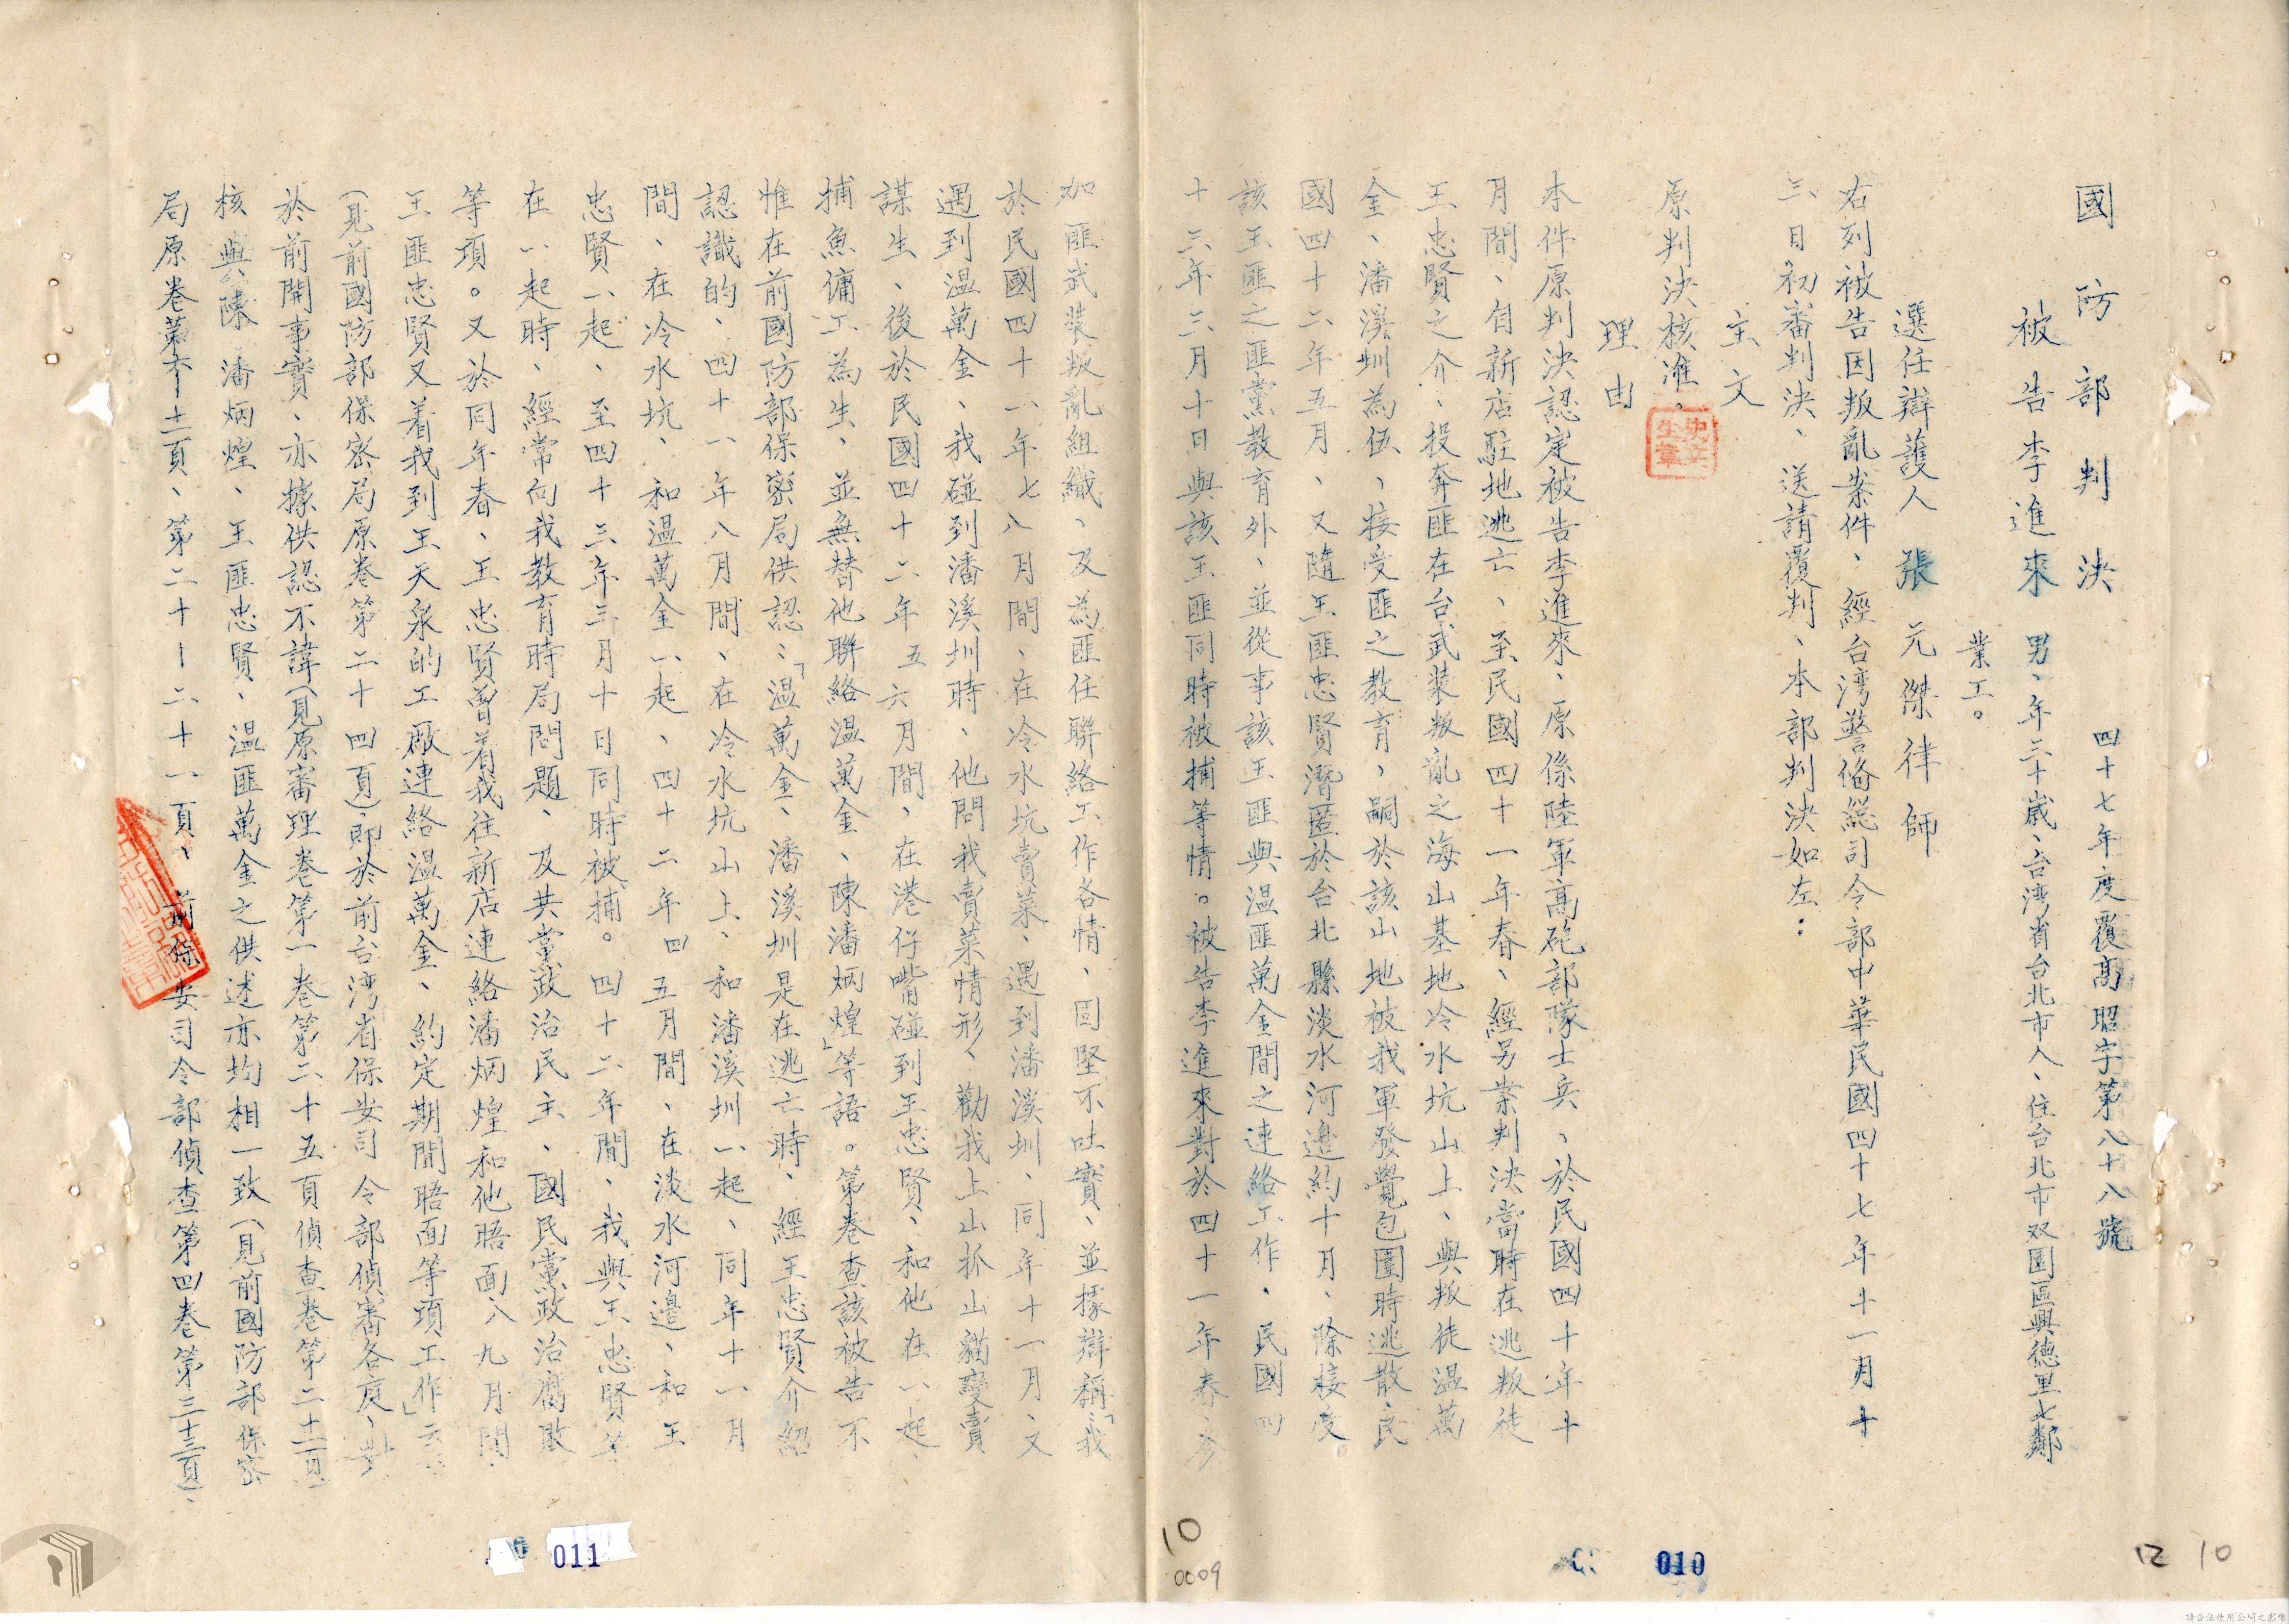 國防部判決
四十七年度覆高昭字第八十八號
被告李進來 男、年三十歲、台湾省台北市人、住台北市双園區興德里七鄰
業工。
選任辯護人 張元傑律師
右列被告因叛亂案件、經台湾警俻総司令部中華民國四十七年十一月十
三日初審判決、送請覆判、本部判決如左：
主文
原判決核准。
理由
本件原判決認定被告李進來、原係陸軍高砲部隊士兵、於民國四十年十
月間、自新店駐地逃亡、至民國四十一年春、經另案判決當時在逃叛徒
王忠賢之介、投奔匪在台武装叛亂之海山基地冷水坑山上、與叛徒温萬
金、潘溪圳為伍、接受匪之教育，嗣於該山地被我軍發覺包圍時逃散民
國四十二年五月、又隨王匪忠賢潛匿於台北縣淡水河邊約十月、除接受
該王匪之匪黨教育外、並從事該王匪與温匪萬金間之連絡工作．民國四
十三年三月十日與該王匪同時被捕等情。被告李進來對於四十一年春參
加匪武装叛亂組織、及為匪任聯絡工作各情、固堅不吐實、並據辯稱：「我
於民國四十一年七八月間、在冷水坑賣菜、遇到潘溪圳、同年十一月又
遇到温萬金、我碰到潘溪圳時、他問我賣菜情形、勸我上山抓山貓變賣
謀生、後於民國四十二年五六月間、在港仔嘴碰到王忠賢、和他在一起、
捕魚傭工為生、並無替他聯絡温萬金、陳潘炳煌」等語。第卷查該被告不
惟在前國防部保密局供認：「温萬金、潘溪圳是在逃亡時、經王忠賢介紹
認識的、四十一年八月間、在冷水坑山上、和潘溪圳一起、同年十一月
間、在冷水坑、和温萬金一起、四十二年四五月間、在淡水河邉、和王
忠賢一起、至四十三年三月十日同時被捕。四十二年間、我與王忠賢等
在一起時、經常向我教育時局問題、及共黨政治民主、國民黨政治腐敗
等項。又於同年春、王忠賢曾着我往新店連絡潘炳煌和他晤面八九月間
王匪忠賢又着我到王天泉的工厰連絡温萬金、約定期間晤面等項工作」云
（見前國防部保密局原卷第二十四頁）即於前台湾省保安司令部偵審各庭、
於前開事實、亦據供認不諱（見原審理卷第一卷第二十五頁偵查卷第二十二頁
核與陳潘炳煌、王匪忠賢、温匪萬金之供述亦均相一致（見前國防部保密
局原卷第六―十二頁、第二十―二十一頁、前保安司令部偵查第四卷第三十三頁）、
011
10
0009
010
12 10
請合法使用公開之影像